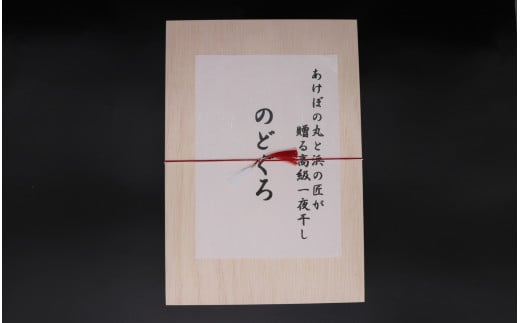 あけぼの丸と浜の匠が
贈る高級一夜干し
のどぐろ